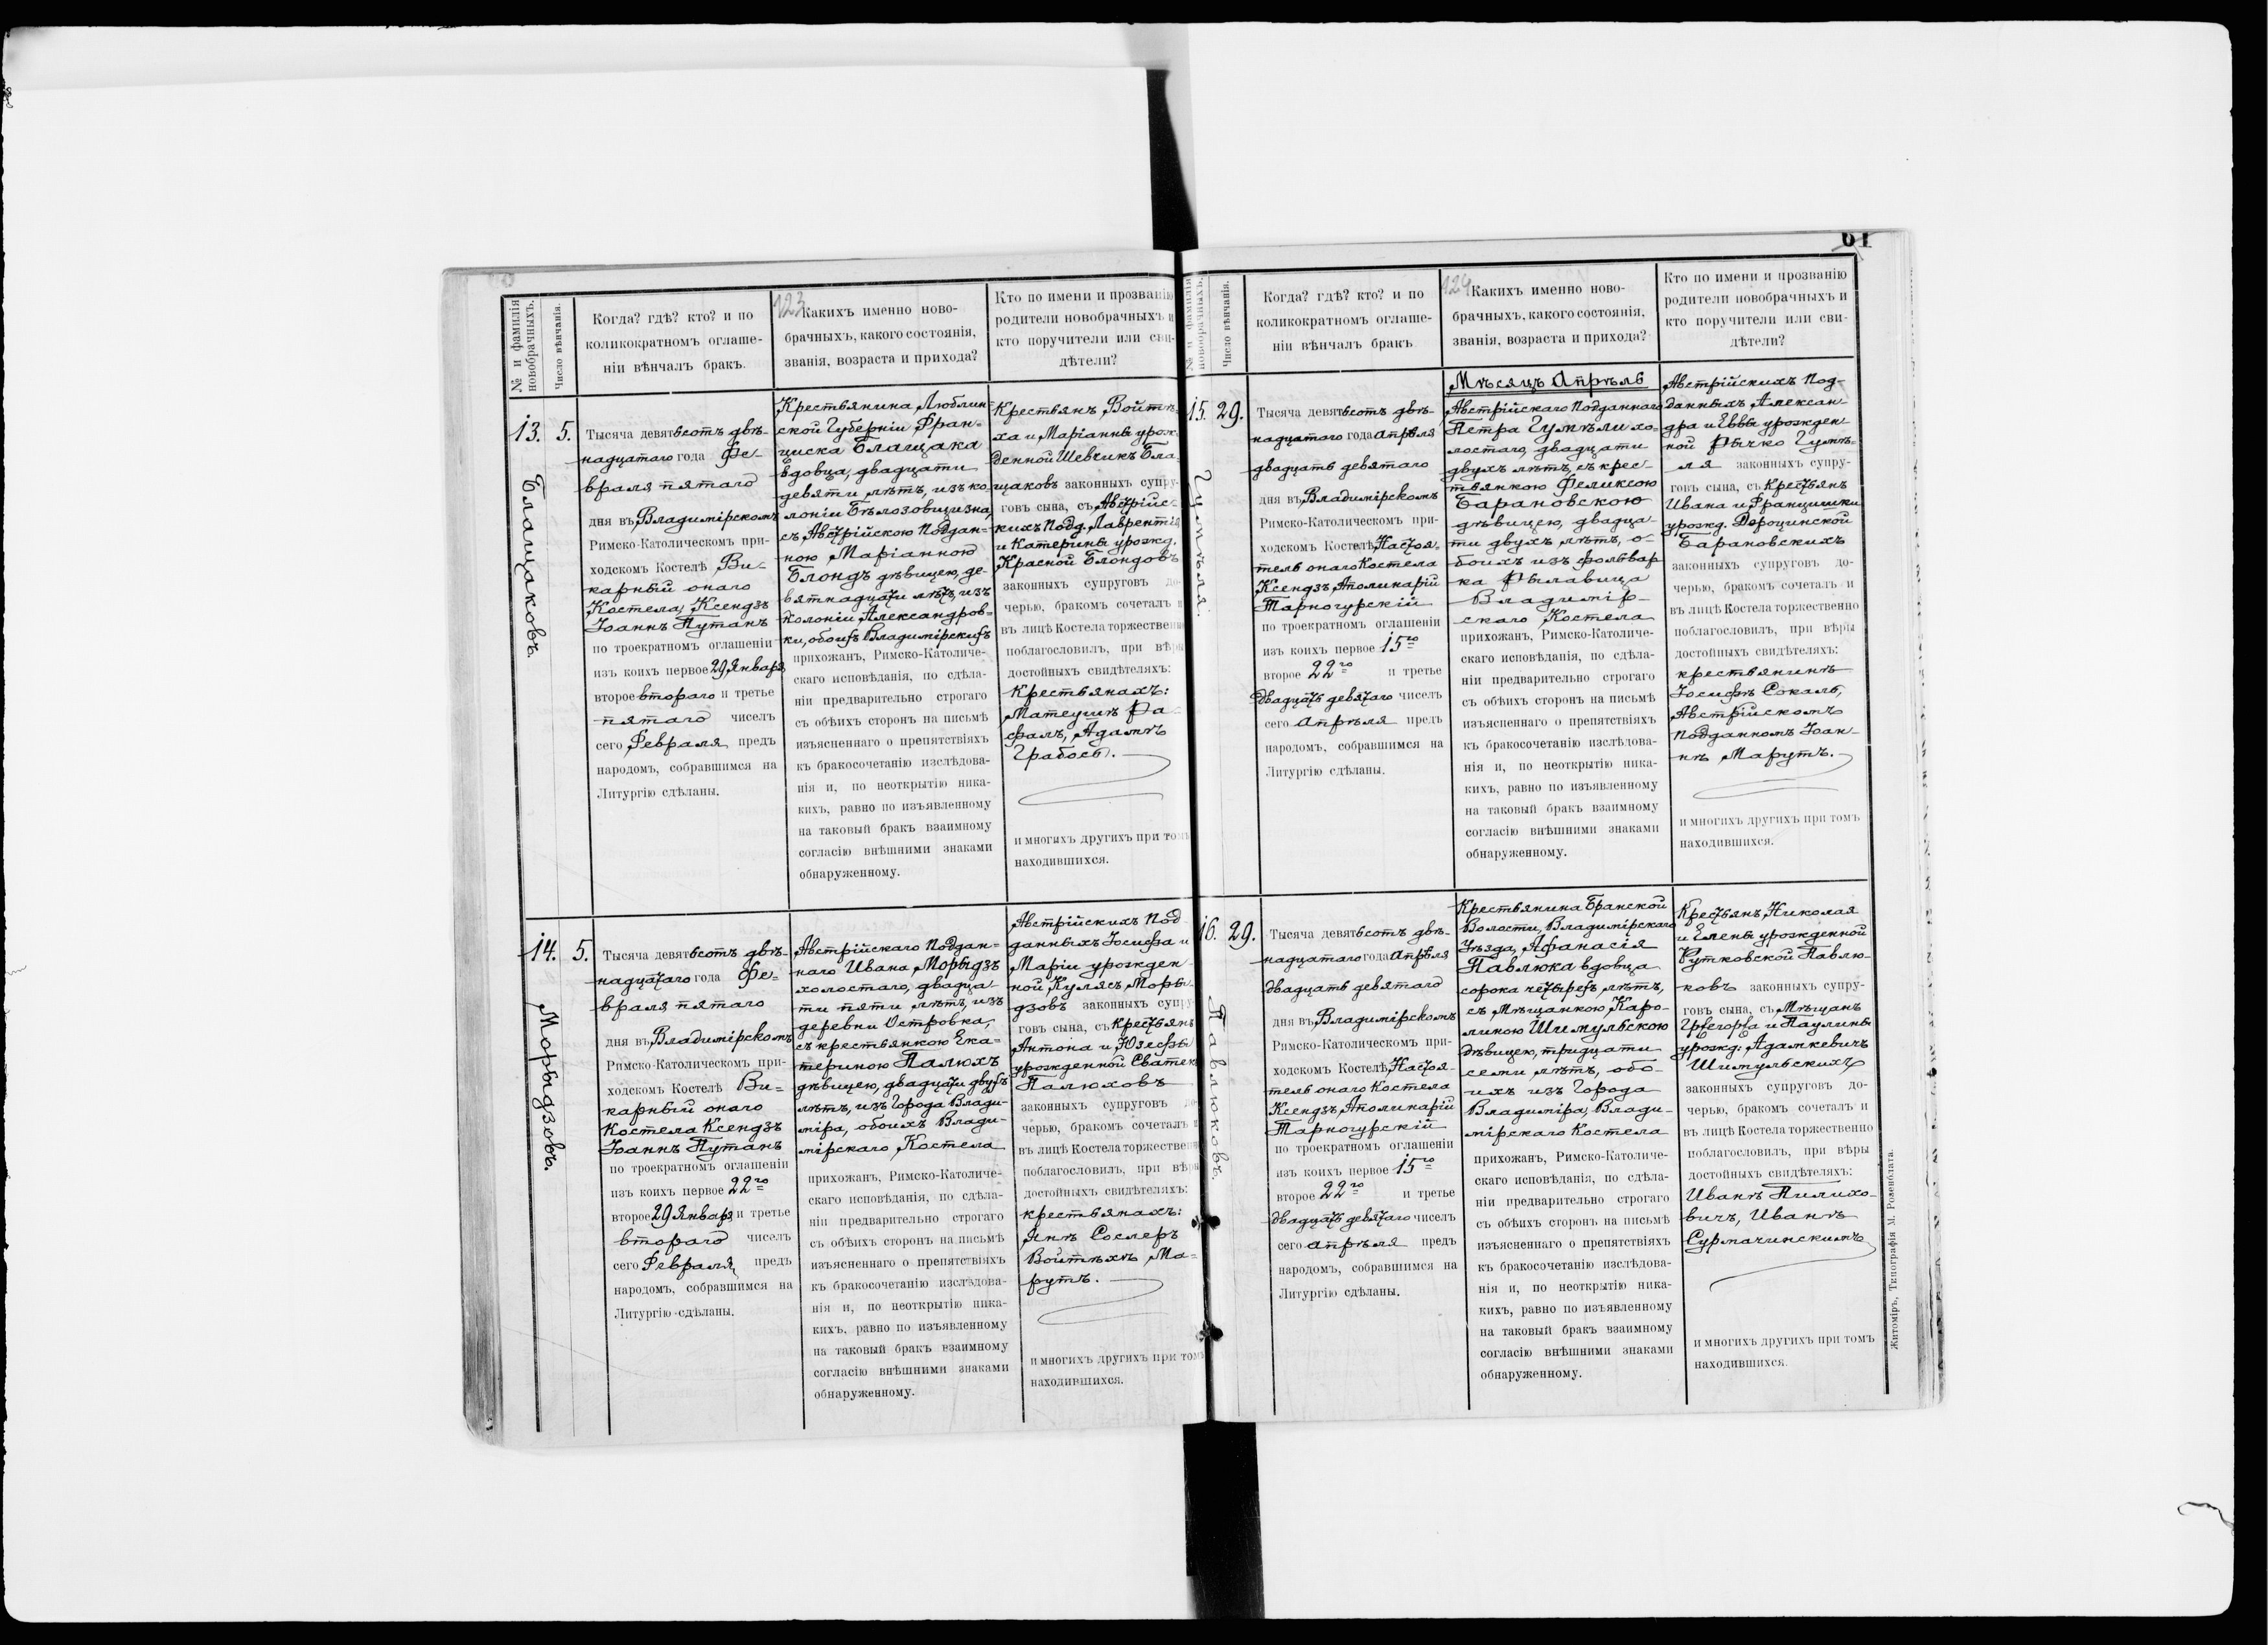 № и фамилія
новобрачныхъ.
Число вѣнчанія.
Когда? гдѣ? кто? и по
коликократномъ оглаше-
ніи вѣнчалъ бракъ.
123
Какихъ именно ново-
брачныхъ, какого состоянія,
званія, возраста и прихода?
Кто по имени и прозванію
родители новобрачныхъ и
кто поручители или сви-
дѣтели?
13.
Блащаковъ.
5.
Тысяча девятьсотъ двѣ-
надцатаго года Фе-
враля пятаго
дня въ Владимірскомъ
Римско-Католическомъ при-
ходскомъ Костелѣ Ви-
карный онаго
Костела, Ксендзъ
Іоаннъ Путанъ
по троекратномъ оглашеніи
изъ коихъ первое 29 Января
второе втораго и третье
пятаго чиселъ
сего Февраля предъ
народомъ, собравшимся на
Литургію сдѣланы.
Крестьянина Люблин-
ской Губерніи Фран-
циска Блащака
вдовца, двадцати
девяти лѣтъ, изъ ко
лоніи Бѣлозовщизна,
съ Австрійскою Поддан-
ною Маріанною
Блондъ дѣвицею, де-
вятнадцати лѣтъ, изъ
Колоніи Александров-
ки, обоихъ Владимірскихъ
прихожанъ, Римско-Католиче-
скаго исповѣданія, по сдѣла-
ніи предварительно строгаго
съ обѣихъ сторонъ на письмѣ
изъясненнаго о препятствіяхъ
къ бракосочетанію изслѣдова-
нія и, по неоткрытію ника-
кихъ, равно по изъявленному
на таковый бракъ взаимному
согласію внѣшними знаками
обнаруженному.
Крестьянъ Войтѣ-
ха и Маріанны урож-
денной Шевчикъ Бла-
щаковъ законныхъ супру-
говъ сына, съ Австрійс-
кихъ Подд. Лаврентія
и Катерины урожд.
Красной Блондовъ
законныхъ супруговъ до-
черью, бракомъ сочеталъ и
въ лицѣ Костела торжественно
поблагословилъ, при вѣры
достойныхъ свидѣтеляхъ:
Крестьянахъ:
Матеушѣ Ра-
фалъ, Адамѣ
Грабосъ.
и многихъ другихъ при томъ
находившихся.
14.
Морыдзовъ.
5.
Тысяча девятьсотъ двѣ-
надцатаго года Фе-
враля пятаго
дня въ Владимірскомъ
Римско-Католическомъ при-
ходскомъ Костелѣ Ви-
карный онаго
Костела Ксендзъ
Іоаннъ Путанъ
по троекратномъ оглашеніи
изъ коихъ первое 22го
второе 29 Января и третье
втораго чиселъ
сего Февраля предъ
народомъ, собравшимся на
Литургію сдѣланы.
Австрійскаго Поддан-
наго Ивана Морыдзъ
холостаго, двадца-
ти пяти лѣтъ, изъ
деревни Островка,
съ крестьянкою Ека-
териною Палюхъ
дѣвицею, двадцати двухъ
лѣтъ, изъ Города Влади-
міра, обоихъ Влади-
мірскаго Костела
прихожанъ, Римско-Католиче-
скаго исповѣданія, по сдѣла-
ніи предварительно строгаго
съ обѣихъ сторонъ на письмѣ
изъясненнаго о препятствіяхъ
къ бракосочетанію изслѣдова-
нія и, по неоткрытію ника-
кихъ, равно по изъявленному
на таковый бракъ взаимному
согласію внѣшними знаками
обнаруженному.
Австрійскихъ Под
данныхъ Іосифа и
Маріи урожден-
ной Кулясъ Моры-
дзовъ законныхъ супру-
говъ сына, съ Крестьянъ
Антона и Юзефы
урожденной Сватекъ
Палюховъ
законныхъ супруговъ до-
черью, бракомъ сочеталъ и
въ лицѣ Костела торжественно
поблагословилъ, при вѣры
достойныхъ свидѣтеляхъ:
крестьянахъ:
Янѣ Сослеръ
Войтѣхѣ Ма-
рутъ.
и многихъ другихъ при томъ
находившихся.
61
№ и фамилія
новобрачныхъ.
Число вѣнчанія.
Когда? гдѣ? кто? и по
коликократномъ оглаше-
ніи вѣнчалъ бракъ
124
Какихъ именно ново-
брачныхъ, какого состоянія,
званія, возраста и прихода?
Кто по имени и прозванію
родители новобрачныхъ и
кто поручители или сви-
дѣтели?
15.
Гумѣля.
29.
Тысяча девятьсотъ двѣ-
надцатаго года Апрѣля
двадцать девятаго
дня въ Владимірскомъ
Римско-Католическомъ при-
ходскомъ Костелѣ Настоя-
тель онаго Костела
Ксендзъ Аполинарій
Тарногурскій
по троекратномъ оглашеніи
изъ коихъ первое 15го
второе 22го и третье
двадцать девятаго чиселъ
сего Апрѣля предъ
народомъ, собравшимся на
Литургію сдѣланы.
Мѣсяцъ Апрѣль
Австрійскаго Подданнаго
Петра Гумѣли хо-
лостаго, двадцати
двухъ лѣтъ, съ крес-
тьянкою Феликсою
Барановскою
дѣвицею, двадца-
ти двухъ лѣтъ, о-
боихъ изъ фольвар
ка Рылавица
Владимір-
скаго Костела
прихожанъ, Римско-Католиче-
скаго исповѣданія, по сдѣла-
ніи предварительно строгаго
съ обѣихъ сторонъ на письмѣ
изъясненнаго о препятствіяхъ
къ бракосочетанію изслѣдова-
нія и, по неоткрытію ника-
кихъ, равно по изъявленному
на таковый бракъ взаимному
согласію внѣшними знаками
обнаруженному.
Австрійскихъ Под-
данныхъ Алексан-
дра и Еввы урожден
ной Рычко Гумѣ-
ля законныхъ супру-
говъ сына, съ Крестьянъ
Ивана и Францишки
урожд. Дороцинской
Барановскихъ
законныхъ супруговъ до-
черью, бракомъ сочеталъ и
въ лицѣ Костела торжественно
поблагословилъ, при вѣры
достойныхъ свидѣтеляхъ:
крестьянинѣ
Іосифѣ Сокаль,
Австрійскомъ
Подданномъ Іоан-
нѣ Марутъ.
и многихъ другихъ при томъ
находившихся.
16.
Павлюковъ.
29.
Тысяча девятьсотъ двѣ-
надцатаго года Апрѣля
двадцать девятаго
дня въ Владимірскомъ
Римско-Католическомъ при-
ходскомъ Костелѣ Настоя-
тель онаго Костела
Ксендзъ Аполинарій
Тарногурскій
по троекратномъ оглашеніи
изъ коихъ первое 15го
второе 22го и третье
двадцать девятаго чиселъ
сего Апрѣля предъ
народомъ, собравшимся на
Литургію сдѣланы.
Крестьянина Бранской
Волости, Владимірскаго
Уѣзда, Афанасія
Павлюка вдовца
сорока четырехъ лѣтъ,
съ Мѣщанкою Каро-
линою Шимульскою
дѣвицею, тридцати
семи лѣтъ, обо-
ихъ изъ Города
Владиміра, Влади-
мірскаго Костела
прихожанъ, Римско-Католиче-
скаго исповѣданія, по сдѣла-
ніи предварительно строгаго
съ обѣихъ сторонъ на письмѣ
изъясненнаго о препятствіяхъ
къ бракосочетанію изслѣдова-
нія и, по неоткрытію ника-
кихъ, равно по изъявленному
на таковый бракъ взаимному
согласію внѣшними знаками
обнаруженному.
Крестьянъ Николая
и Елены урожденной
Рутковской Павлю-
ковъ законныхъ супру-
говъ сына, съ Мѣщанъ
Григорія и Паулины
урожд: Адамкевичъ
Шимульскихъ
законныхъ супруговъ до-
черью, бракомъ сочеталъ и
въ лицѣ Костела торжественно
поблагословилъ, при вѣры
достойныхъ свидѣтеляхъ:
Иванѣ Пилихо-
вичъ, Иванѣ
Сурмачинскимъ
и многихъ другихъ при томъ
находившихся.
Житоміръ, Типографія М. Розенблата.